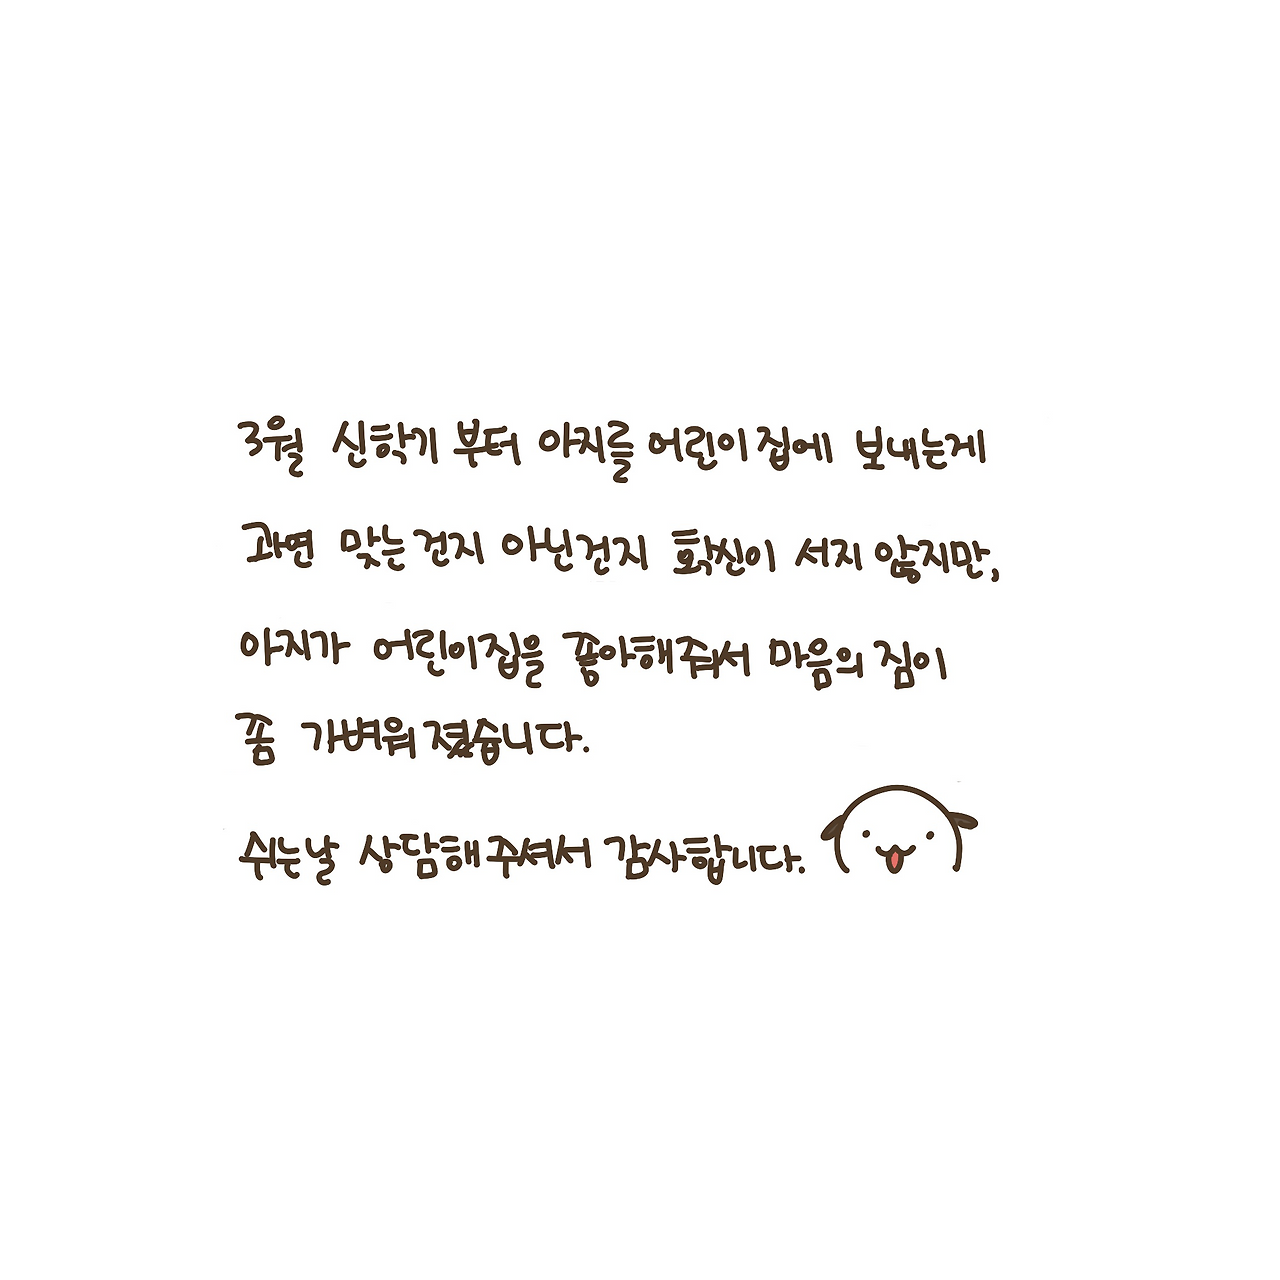 3월 신학기부터 아지를 어린이집에 보내는게
과연 맞는건지 아닌건지 확신이 서지 않지만,
아지가 어린이집을 좋아해줘서 마음의 짐이
좀 가벼워졌습니다.
쉬는날 상담해주셔서 감사합니다.